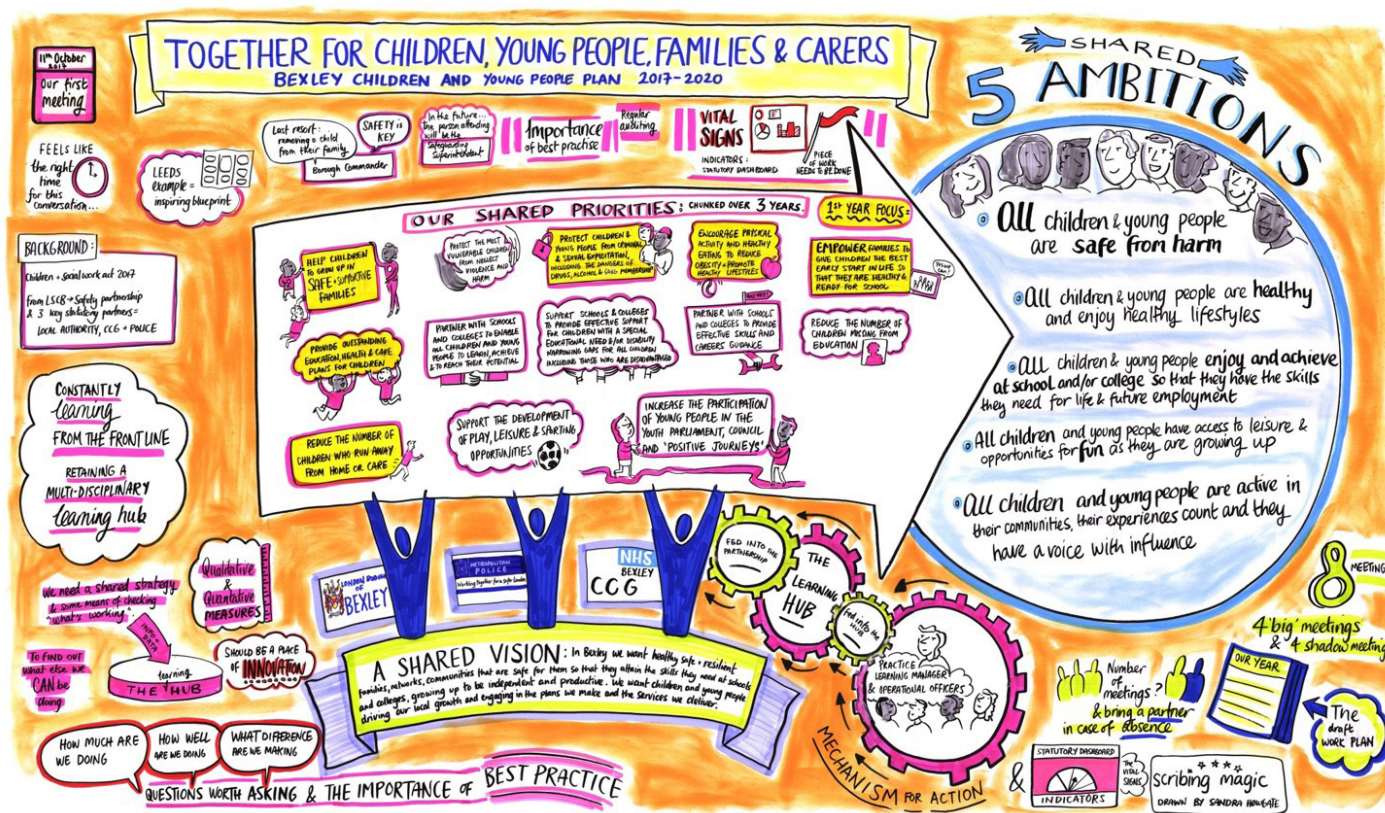 11th October
2017
Our first
meeting
TOGETHER FOR CHILDREN, YOUNG PEOPLE, FAMILIES & CARERS
BEXLEY CHILDREN AND YOUNG PEOPLE PLAN 2017-2020
SHARED
5 AMBITIONS
FEELS LIKE
the right
time
for this
conversation...
LEEDS
example =
inspiring blueprint
Last resort:
removing a child
from their family
SAFETY is
KEY
Borough Commander
In the future...
the person attending
will be the
Safeguarding
Superintendent
Importance
of best practise
Regular
auditing
VITAL
SIGNS
INDICATORS:
STATUTORY DASHBOARD
PIECE
OF WORK
NEEDS TO BE DONE
BACKGROUND:
Children + social work act 2017
from LSCB → Safety partnership
& 3 key statutory partners=
LOCAL AUTHORITY, CCG + POLICE
OUR SHARED PRIORITIES: CHUNKED OVER 3 YEARS
1ST YEAR FOCUS=
HELP CHILDREN
TO GROW UP IN
SAFE + SUPPORTIVE
FAMILIES
PROTECT THE MOST
VULNERABLE CHILDREN
FROM NEGLECT
VIOLENCE AND
HARM
PROTECT CHILDREN &
YOUNG PEOPLE FROM CRIMINAL
& SEXUAL EXPLOITATION,
INCLUDING THE DANGERS OF
DRUGS, ALCOHOL & GANG MEMBERSHIP
ENCOURAGE PHYSICAL
ACTIVITY AND HEALTHY
EATING TO REDUCE
OBESITY + PROMOTE
HEALTHY LIFESTYLES
EMPOWER FAMILIES TO
GIVE CHILDREN THE BEST
EARLY START IN LIFE SO
THAT THEY ARE HEALTHY &
READY FOR SCHOOL
PROVIDE OUTSTANDING
EDUCATION, HEALTH & CARE
PLANS FOR CHILDREN
PARTNER WITH SCHOOLS
AND COLLEGES TO ENABLE
ALL CHILDREN AND YOUNG
PEOPLE TO LEARN, ACHIEVE
& TO REACH THEIR POTENTIAL
SUPPORT SCHOOLS & COLLEGES
TO PROVIDE EFFECTIVE SUPPORT
FOR CHILDREN WITH A SPECIAL
EDUCATIONAL NEED &/OR DISABILITY
NARROWING GAPS FOR ALL CHILDREN
INCLUDING THOSE WHO ARE DISADVANTAGED
PARTNER WITH SCHOOLS
AND COLLEGES TO PROVIDE
EFFECTIVE SKILLS AND
CAREERS GUIDANCE
REDUCE THE NUMBER OF
CHILDREN MISSING FROM
EDUCATION
REDUCE THE NUMBER OF
CHILDREN WHO RUN AWAY
FROM HOME OR CARE
SUPPORT THE DEVELOPMENT
OF PLAY, LEISURE & SPORTING
OPPORTUNITIES
INCREASE THE PARTICIPATION
OF YOUNG PEOPLE IN THE
YOUTH PARLIAMENT, COUNCIL
AND 'POSITIVE JOURNEYS'
All children & young people
are safe from harm
All children & young people are healthy
and enjoy healthy lifestyles
All children & young people enjoy and achieve
at school and/or college so that they have the skills
they need for life & future employment
All children and young people have access to leisure &
opportunities for fun as they are growing up
All children and young people are active in
their communities, their experiences count and they
have a voice with influence
CONSTANTLY
learning
FROM THE FRONT LINE
RETAINING A
MULTI-DISCIPLINARY
learning hub
We need a shared strategy
& some means of checking
"what's working"
Qualitative
&
Quantative
MEASURES
INFO +
DATA
learning
THE HUB
TO FIND OUT
what else we
CAN be
doing
SHOULD BE A PLACE
OF INNOVATION
LONDON BOROUGH
OF
BEXLEY
METROPOLITAN
POLICE
Working together for a safer London
NHS
BEXLEY
CCG
A SHARED VISION: In Bexley we want healthy, safe + resilient
families, networks, communities that are safe for them so that they attain the skills they need at schools
and colleges, growing up to be independent and productive. We want children and young people
driving our local growth and engaging in the plans we make and the services we deliver.
FED INTO THE
PARTNERSHIP
THE
LEARNING
HUB
Fed into the
HUB
PRACTICE
LEARNING MANAGER
& OPERATIONAL OFFICERS
MECHANISM FOR ACTION
HOW MUCH ARE
WE DOING
HOW WELL
ARE WE DOING
WHAT DIFFERENCE
ARE WE MAKING
QUESTIONS WORTH ASKING & THE IMPORTANCE OF
BEST PRACTICE
8
MEETING
4 'big' meetings
& '4 shadow meeting
Number
of
meetings?
& bring a partner
in case of absence
OUR YEAR
The
draft
WORK PLAN
&
STATUTORY DASHBOARD
INDICATORS
THE
VITAL
SIGNS
scribing magic
DRAWN BY SANDRA HOWGATE